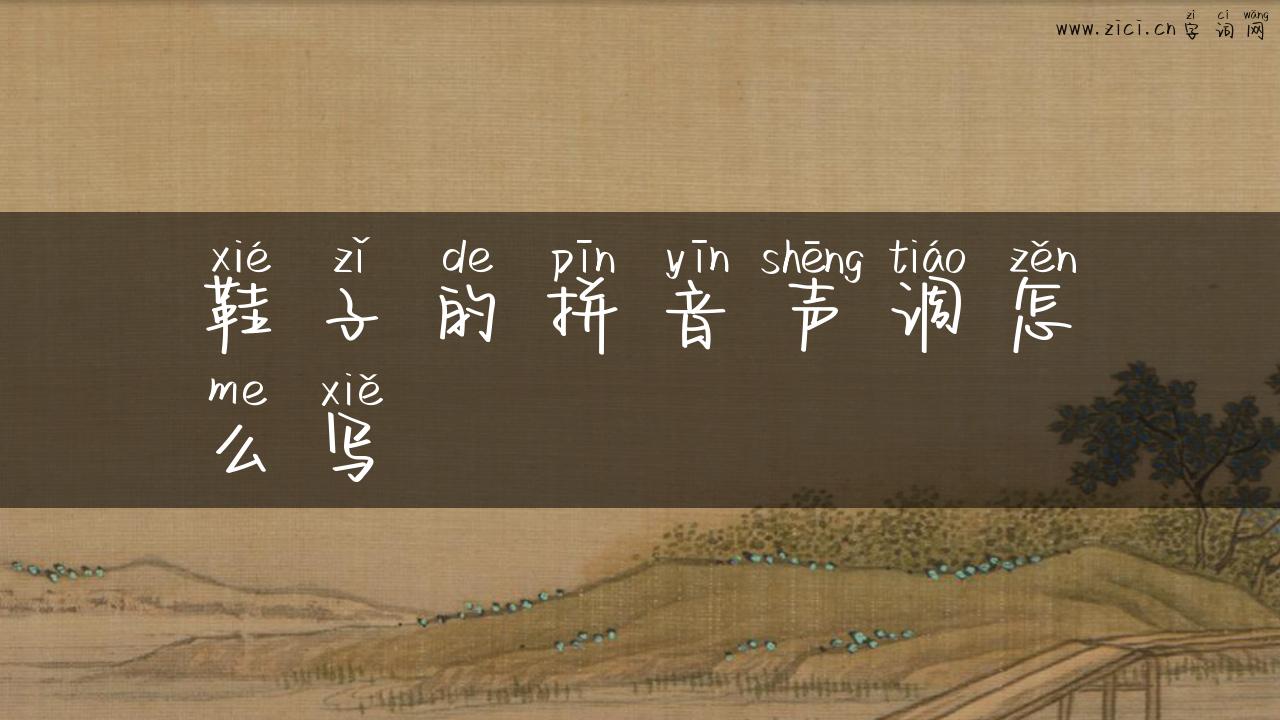 zì cí wǎng
www.zici.cn字词网
xié zǐ de pīn yīn shēng tiáo zěn
鞋子的拼音声调怎
me xiě
么写